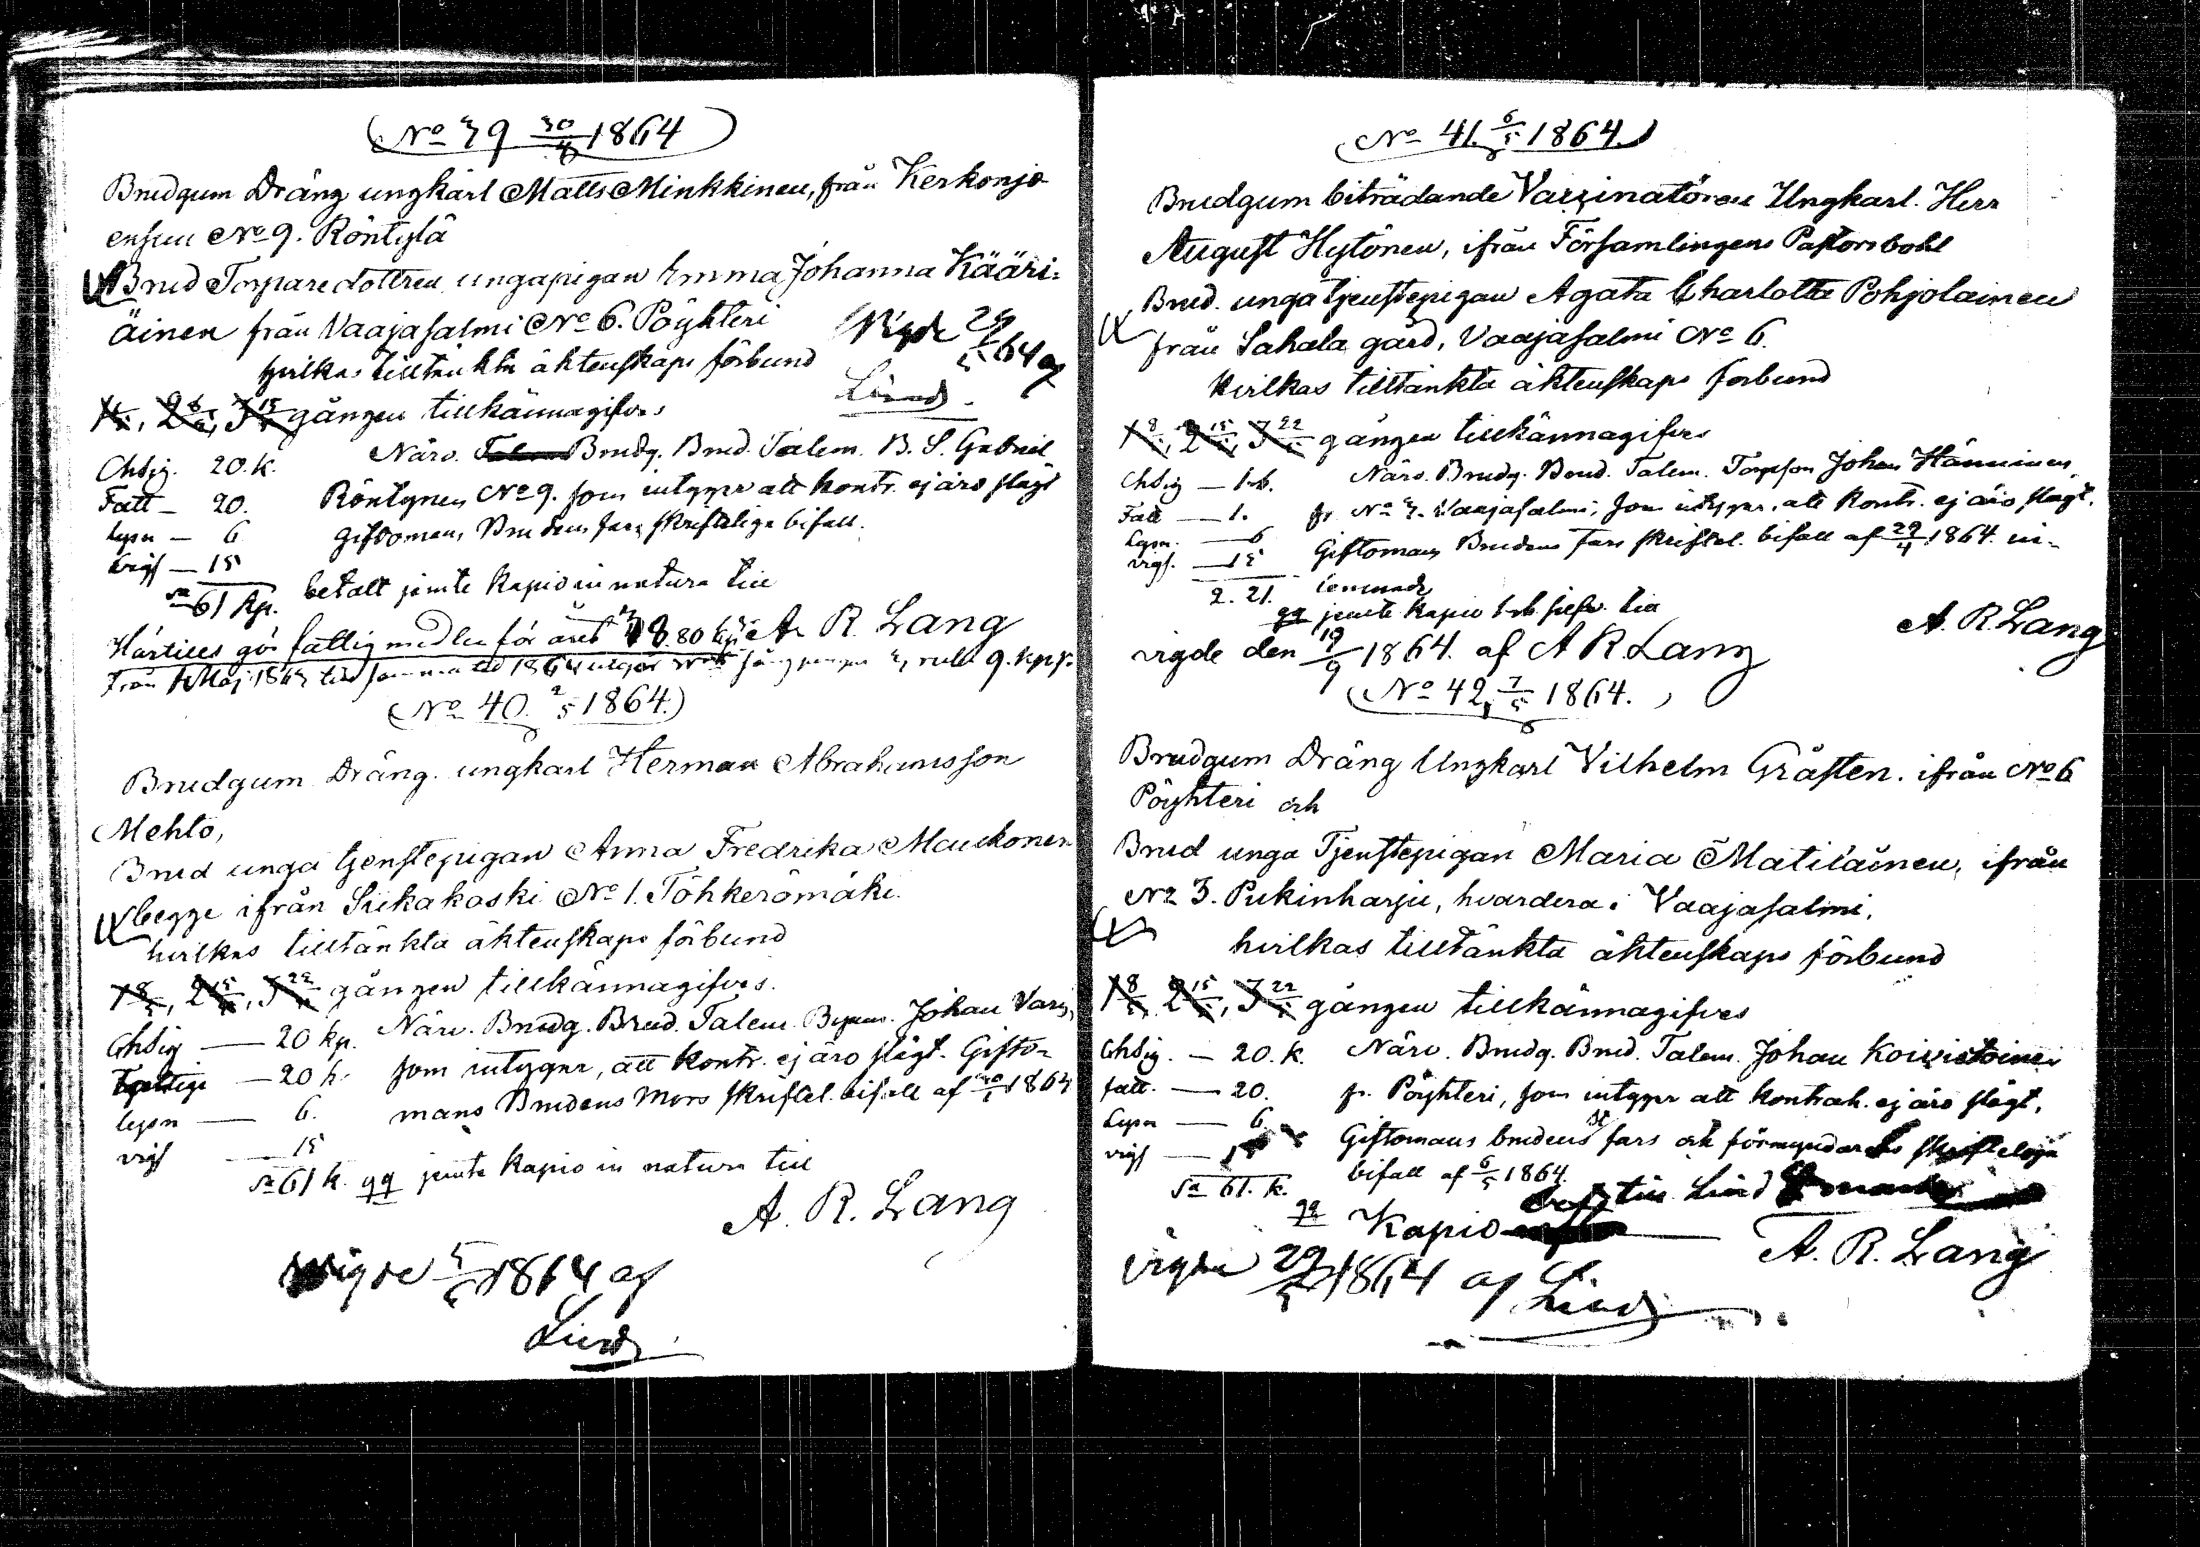 (No 39 30/4 1864)
Brudgum Dräng ungkarl Matts Minkkinen, från Kerkonjo-
ensuu No 9. Röntylä
Brud Torparedottren ungapigan Emma Johanna Kääri-
äinen från Vaajasalmi No 6. Pöyhteri
hvilkas tilltänkta äktenskaps förbund
Vigde 29/5 64 af
Lind.
1, 2, 3 15/5 gången tillkännagifves
Närv. Brudg. Brud. Talem. B. S. Gabriel
Chsig. 20. k.
Röntynen No 9. som intygar att kontr. ej äro slägt
Fatt – 20.
Giftoman, Brudens fars skriftliga bifall.
Lysn – 6
Vigs – 15
Sa 61 kp. betalt jemte Kapio in natura till
A. R. Lang
Härtill gör fattigmedlen för året
Från 1 Maj 1863 till samma tid 1864 utgör 9. kp
(No 40. 2/5 1864.)
Brudgum Dräng. ungkarl Herman Abrahamsson
Mehto,
Brud unga tjenstepigan Anna Fredrika Mauckonen
begge ifrån Siikakoski No 1. Töhkerömäki.
hvilkas tilltänkta äktenskaps förbund
1 8/5, 2 15/5, 3 22/5 gången tillkännagifves.
Chsig — 20 kp. Närv. Brudg. Brud. Talem. Johan
— 20 k. som intygar, att kontr. ej äro slägt. Gifto-
lysn — 6. mans Brudens Mors skriftel. bifall af 1864
vigs — 15
Sa 61 k. qq jemte Kapio in natura till
A. R. Lang
vigde 5/6 1864 af
Lind
(No 41. 6/5 1864.)
Brudgum biträdande Vaccinatören Ungkarl. Herr
August Hytönen, ifrån Församlingens Pastorsbohl
Brud. unga tjenstepigan Agata Charlotta Pohjolainen
från Sahala gård, Vaajasalmi No 6.
hvilkas tilltänkta äktenskaps förbund
1 8/5, 2 15/5, 3 22/5 gången tillkännagifves
Chsig — 1 rb. Närv. Brudg. Brud. Talem. Torpson Johan Hänninen,
Fatt — 1. fr. No 3. Vaajasalmi, som intygar, att kontr. ej äro slägt.
Lysn. — 6 Giftomans Brudens fars skriftel. bifall af 29/4 1864. in-
vigs. — 15 lemnade
2. 21.
qq jemte Kapio 1 rb. silfv. till
A. R. Lang
vigde den 19/9 1864. af A R. Lang
(No 42, 7/5 1864.)
Brudgum Dräng Ungkarl Vilhelm Gråsten. ifrån No 6
Pöyhteri och
Brud unga Tjenstepigan Maria Matilainen, ifrån
No 3. Pukinharju, hvardera i Vaajasalmi,
hvilkas tilltänkta äktenskaps förbund
1 8/5, 2 15/5, 3 22/5 gången tillkännagifves
Chsig. — 20. k. Närv. Brudg. Brud. Talem. Johan Koivistoinen
fatt. — 20. fr. Pöyhteri, som intygar att kontrah. ej äro slägt,
Lysn — 6 Giftomans brudens fars och förmyndares skrifteliga
vigs — 15 bifall af 6/5 1864.
Sa 61. k.
till Lind
qq Kapio
A. R. Lang
vigde 29/5 1864 af
Lind